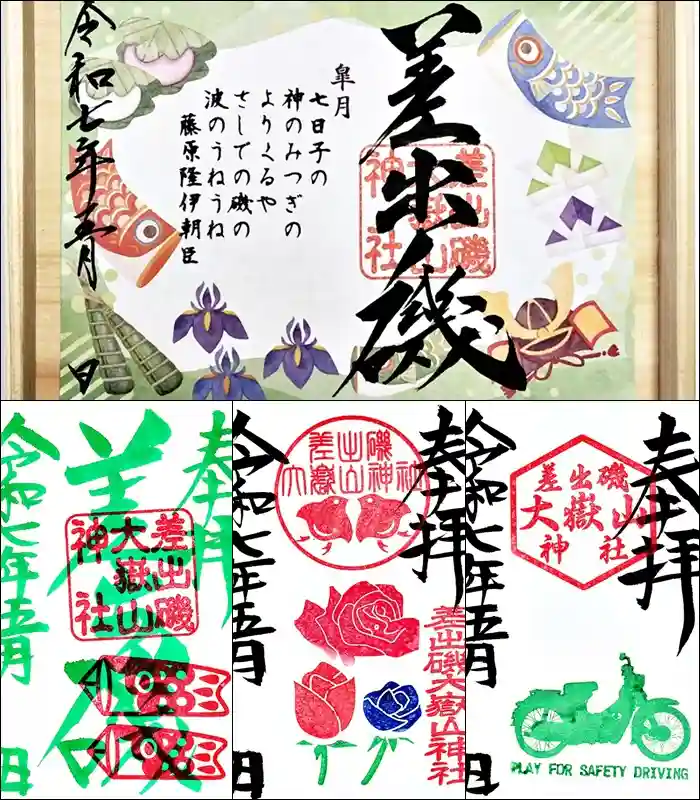 差出磯
差出磯
大嶽山
神社
皐月
七日子の
神のみつぎの
よりくるや
さしでの磯の
波のうねうね
藤原隆伊朝臣
令和七年五月 日
奉拝
差出磯
大嶽山
神社
令和七年五月 日
奉拝
差出磯
大嶽山神社
差出磯大嶽山神社
令和七年五月 日
奉拝
差出磯
大嶽山
神社
PLAY FOR SAFETY DRIVING
令和七年五月 日